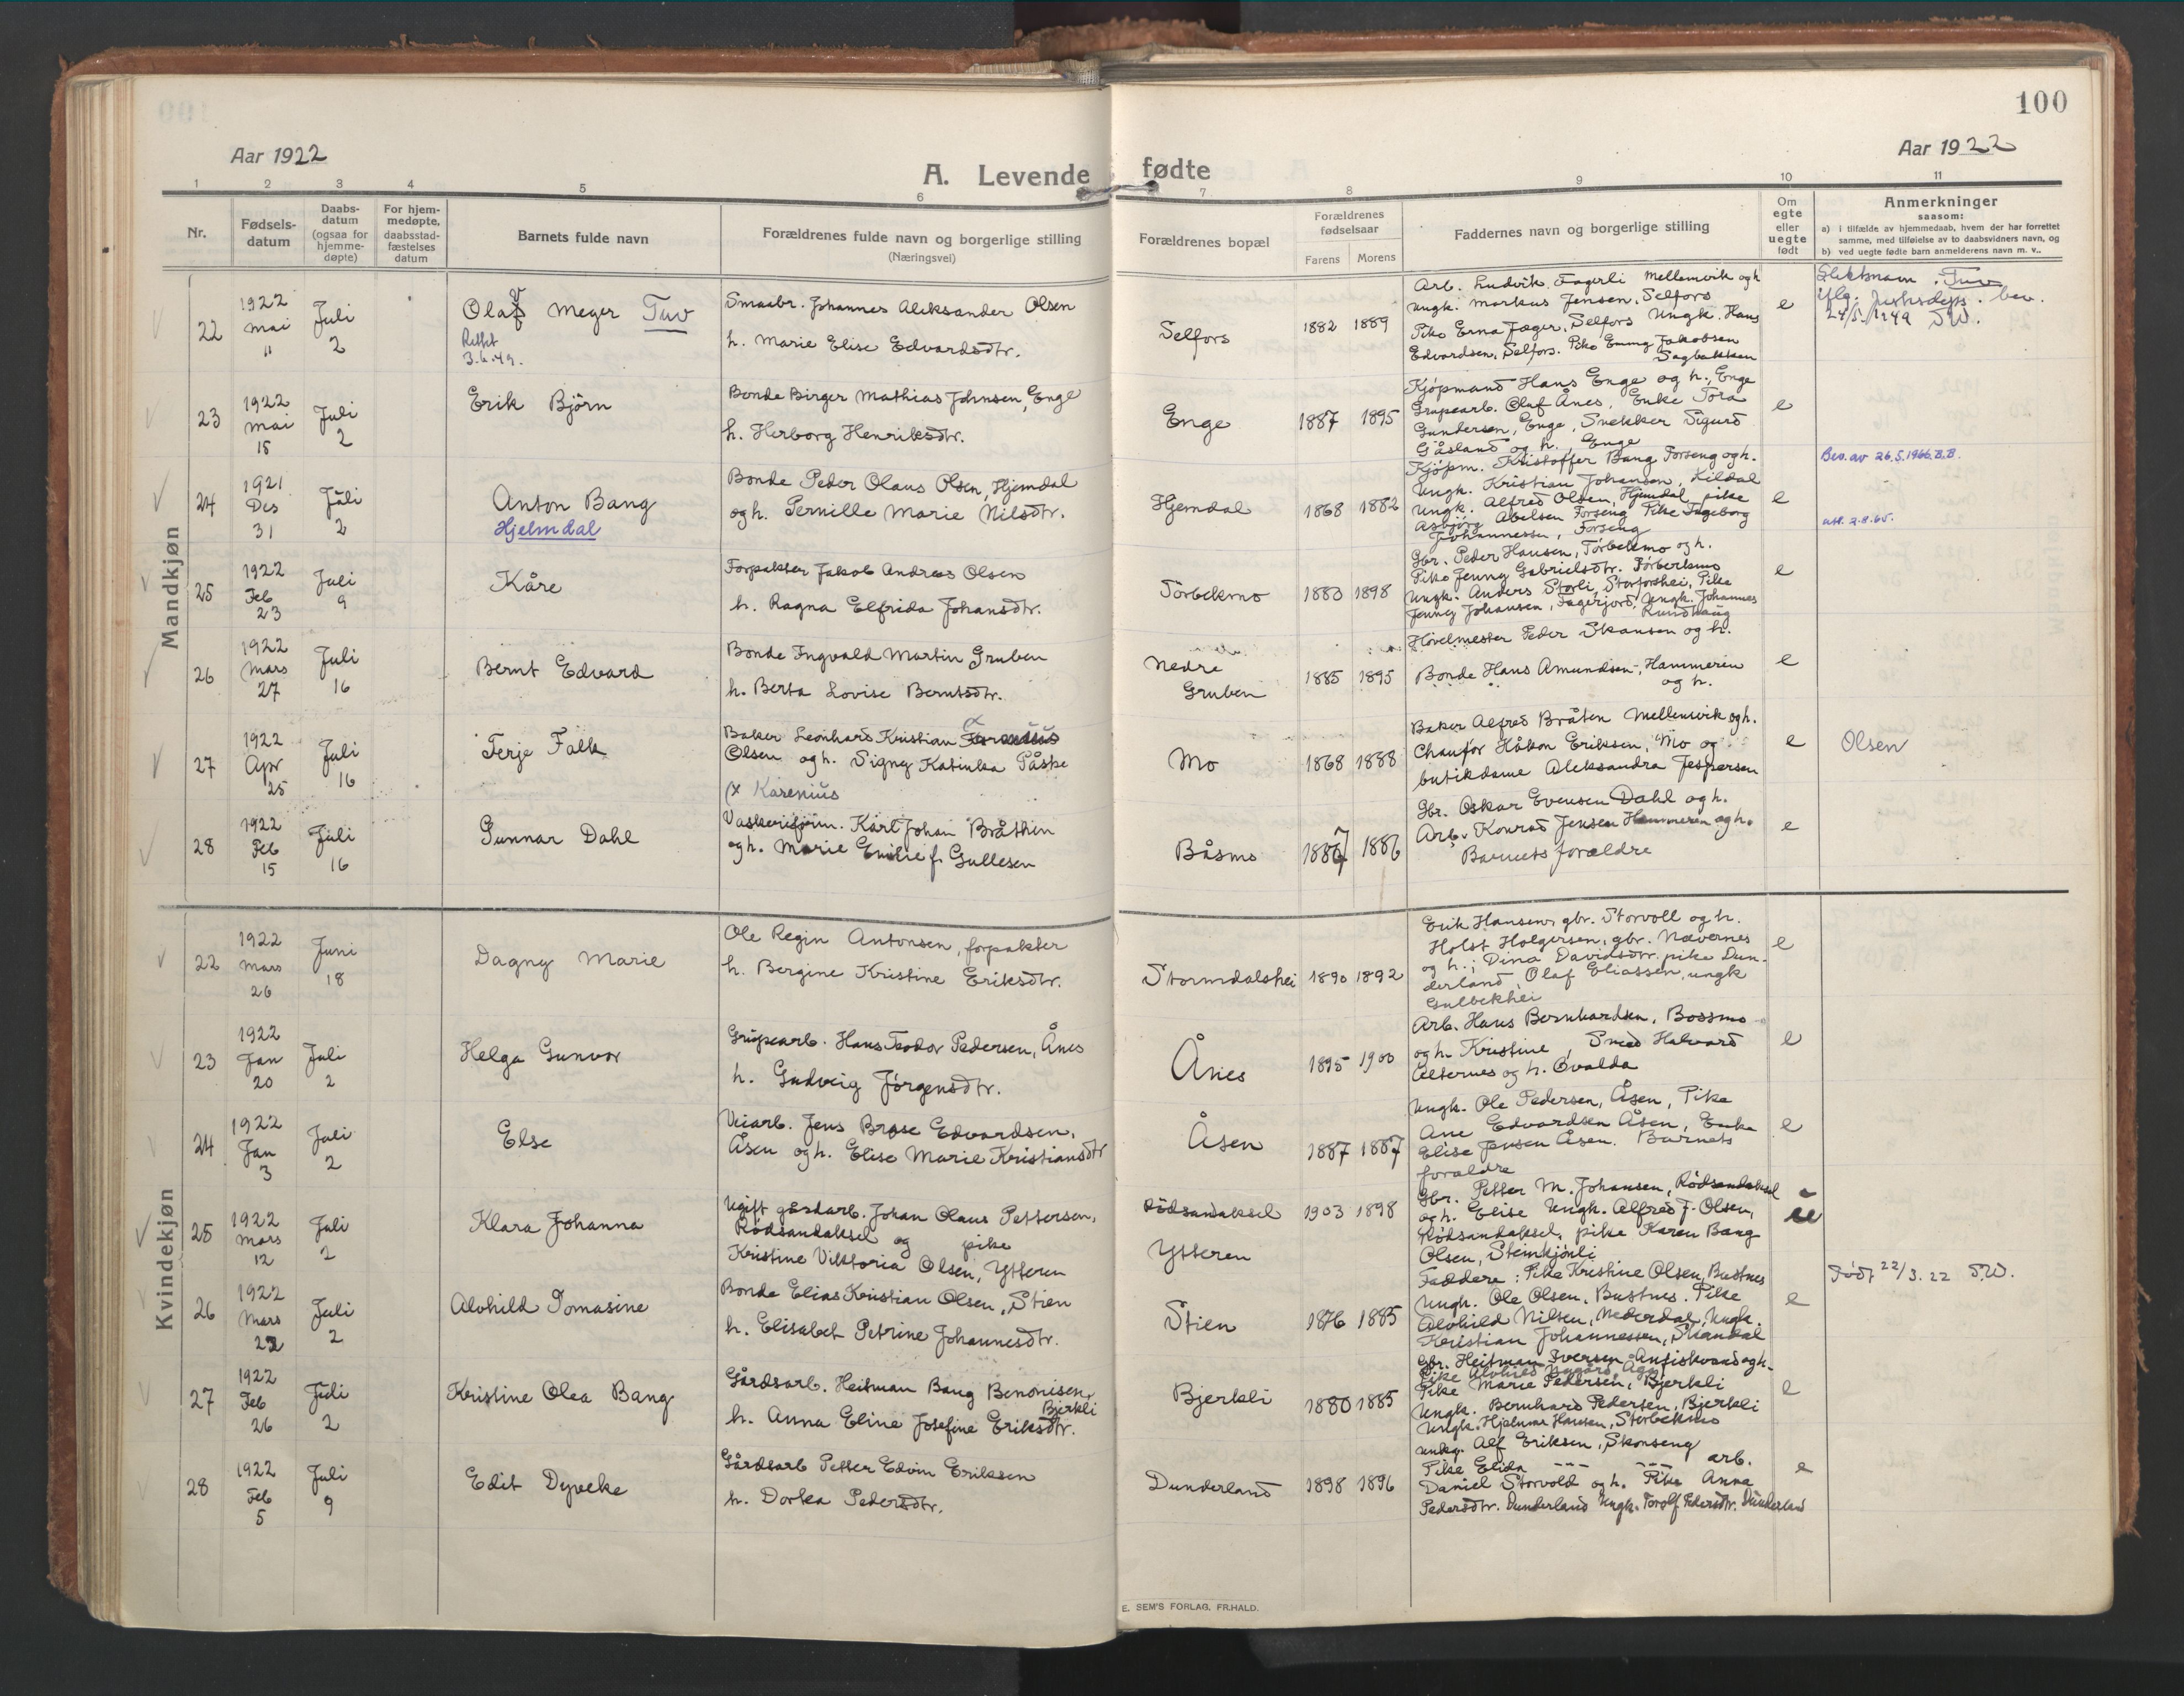 100
Aar 1922
Aar 1922
A. Levende fødte
1 2 3 4 5 6 7 8 9 10 11
Nr.
Fødsels-
datum
Daabs-
datum
(ogsaa for
hjemme-
døpte)
For hjem-
medøpte,
daabsstad-
fæstelses
datum
Barnets fulde navn
Forældrenes fulde navn og borgerlige stilling
(Næringsvei)
Forældrenes bopæl
Forældrenes
fødselsaar
Farens Morens
Faddernes navn og borgerlige stilling
Om
egte
eller
uegte
født
Anmerkninger
saasom:
a) i tilfælde av hjemmedaab, hvem der har forrettet
samme, med tilføielse av to daabsvidners navn, og
b) ved uegte fødte barn anmelderens navn m. v..
Mandkjøn
22
1922
Mai
11
Juli
2
Olaf Meyer Tuv
Rettet
3.6.49.
Smaabr. Johannes Aleksander Olsen
h. Marie Elise Edvardsdtr.
Selfors
1882 1889
Arb. Ludvik Fagerli Mellemvik og h
Ungk. Markus Jensen, Selfors
Pike Erna Jæger, Selfors Ungk. Hans
Edvardsen, Selfors. Pike Emmy Jakobsen
Sagbakken
e
Slektsnavn: Tuv
iflg. justisdeps. bev.
24/5. 1949 SW.
23
1922
Mai
18
Juli
2
Erik Björn
Bonde Birger Mathias Johnsen, Enge
h. Herborg Henriksdtr.
Enge
1887 1895
Kjöpmand Hans Enge og h., Enge
Grupearb. Olaf Ånes, Enke Tora
Gundersen, Enge, Snekker Sigurd
Gåsland og h., Enge
e
24
1921
Des
31
Juli
2
Anton Bang
Hjelmdal
Bonde Peder Olaus Olsen, Hjemdal
og h. Pernille Marie Nilsdtr.
Hjemdal
1868 1882
Kjöpm. Kristoffer Bang Forseng og h.
Ungk. Kristian Johansen, Kildal
Ungk. Alfred Olsen, Hjemdal pike
Asbjörg Abelsen Forseng Pike Ingeborg
Johannessen, Forseng
e
Bev. av 26.5.1966. B.B.
att. 2.8.65.
25
1922
Feb
23
Juli
9
Kåre
Forpakter Jakob Andreas Olsen
h. Ragna Elfrida Johansdtr.
Törbekmo
1880 1898
Gbr. Peder Hansen, Törbekmo og h.
Pike Jenny Gabrielsdtr. Törbekmo
Ungk. Anders Storli, Storforshei, Pike
Jenny Johansen, Fagerjord, Ungk. Johannes
Rundhaug
e
26
1922
Mars
27
Juli
16
Bernt Edvard
Bonde Ingvald Martin Gruben
h. Berta Lovise Berntsdtr.
Nedre
Gruben
1885 1895
Hövelmester Peder Skansen og h.
Bonde Hans Amundsen, Hammeren
og h.
e
27
1922
Apr
25
Juli
16
Terje Falk
Baker Leonhard Kristian
Olsen og h. Signy Katinka Påske
(x Karenius
Mo
1868 1888
Baker Alfred Bråten Mellemvik og h.
Chauför Håkon Eriksen, Mo og
butikdame Aleksandra Jespersen
e
Olsen
28
1922
Feb
15
Juli
16
Gunnar Dahl
Vaskeriform. Karl Johan Bråthen
og h. Marie Emilie f. Gullesen
Båsmo
1887 1886
Gbr. Oskar Evensen Dahl og h.
Arb. Konrad Jensen Hammeren og h.
Barnets forældre
e
Kvindekjøn
22
1922
Mars
26
Juni
18
Dagny Marie
Ole Regin Antonsen, forpakter
h. Bergine Kristine Eriksdtr.
Stormdalshei
1890 1892
Erik Hansen, gbr. Storvoll og h.
Holst Holgersen, gbr. Nævernes
og h.; Dina Davidsdtr. pike Dun-
derland, Olaf Eliassen, ungk
Gulbekhei
e
23
1922
Jan
20
Juli
2
Helga Gunvor
Grupearb. Hans Teodor Pedersen, Ånes
h. Gudveig Jörgensdtr.
Ånes
1895 1900
Arb. Hans Bernhardsen, Bossmo
og h. Kristine, Smed Halvard
Alternes og h. Ovalda
e
24
1922
Jan
3
Juli
2
Else
Veiarb. Jens Brose Edvardsen,
Åsen og h. Elise Marie Kristiansdtr
Åsen
1887 1887
Ungk. Ole Pedersen, Åsen, Pike
Ane Edvardsen Åsen, Enke
Elise Jensen Åsen. Barnets
foraldre
e
25
1922
Mars
12
Juli
2
Klara Johanna
Ugift gårdarb. Johan Olaus Pettersen,
Rödsandaksel og pike
Kristine Viktoria Olsen, Ytteren
Rödsandaksel
Ytteren
1903 1898
Gbr. Petter M. Johansen, Rödsandaksel
og h. Elise Ungk. Alfred J. Olsen,
Rödsandaksel, pike Karen Bang
Olsen, Steinkjönli
26
1922
Mars
22
Juli
2
Alvhild Tomasine
Bonde Elias Kristian Olsen, Stien
h. Elisabet Petrine Johannesdtr.
Stien
1876 1885
Faddere: Pike Kristine Olsen, Bustnes
Ungk. Ole Olsen, Bustnes. Pike
Alvhild Nilsen, Nederdal, Ungk.
Kristian Johannessen, Skandal
e
Födt 22/3. 22 SW.
27
1922
Feb
26
Juli
2
Kristine Olea Bang
Gårdsarb. Heitman Bang Benonisen,
Bjerkli
h. Anna Eline Josefine Eriksdtr.
Bjerkli
1880 1885
Gbr. Heitman Iversen Anfiskvand og h.
Pike Alvhild
Pike Marie Pedersen, Bjerkli
Ungk. Bernhard Pedersen, Bjerkli
Ungk. Hjalmar Hansen, Storbekmo
e
28
1922
Feb
5
Juli
9
Edit Dyveke
Gårdsarb Petter Edvin Eriksen
h. Dorka Pedersdtr.
Dunderland
1898 1896
Ungk. Alf Eriksen, Skonseng
Pike Elida --- --- arb.
Daniel Storvold og h. Pike Anna
Pedersdtr. Dunderland Ungk. Torolf Pedersdtr. Dunderland
e
E. SEM'S FORLAG, FR.HALD.